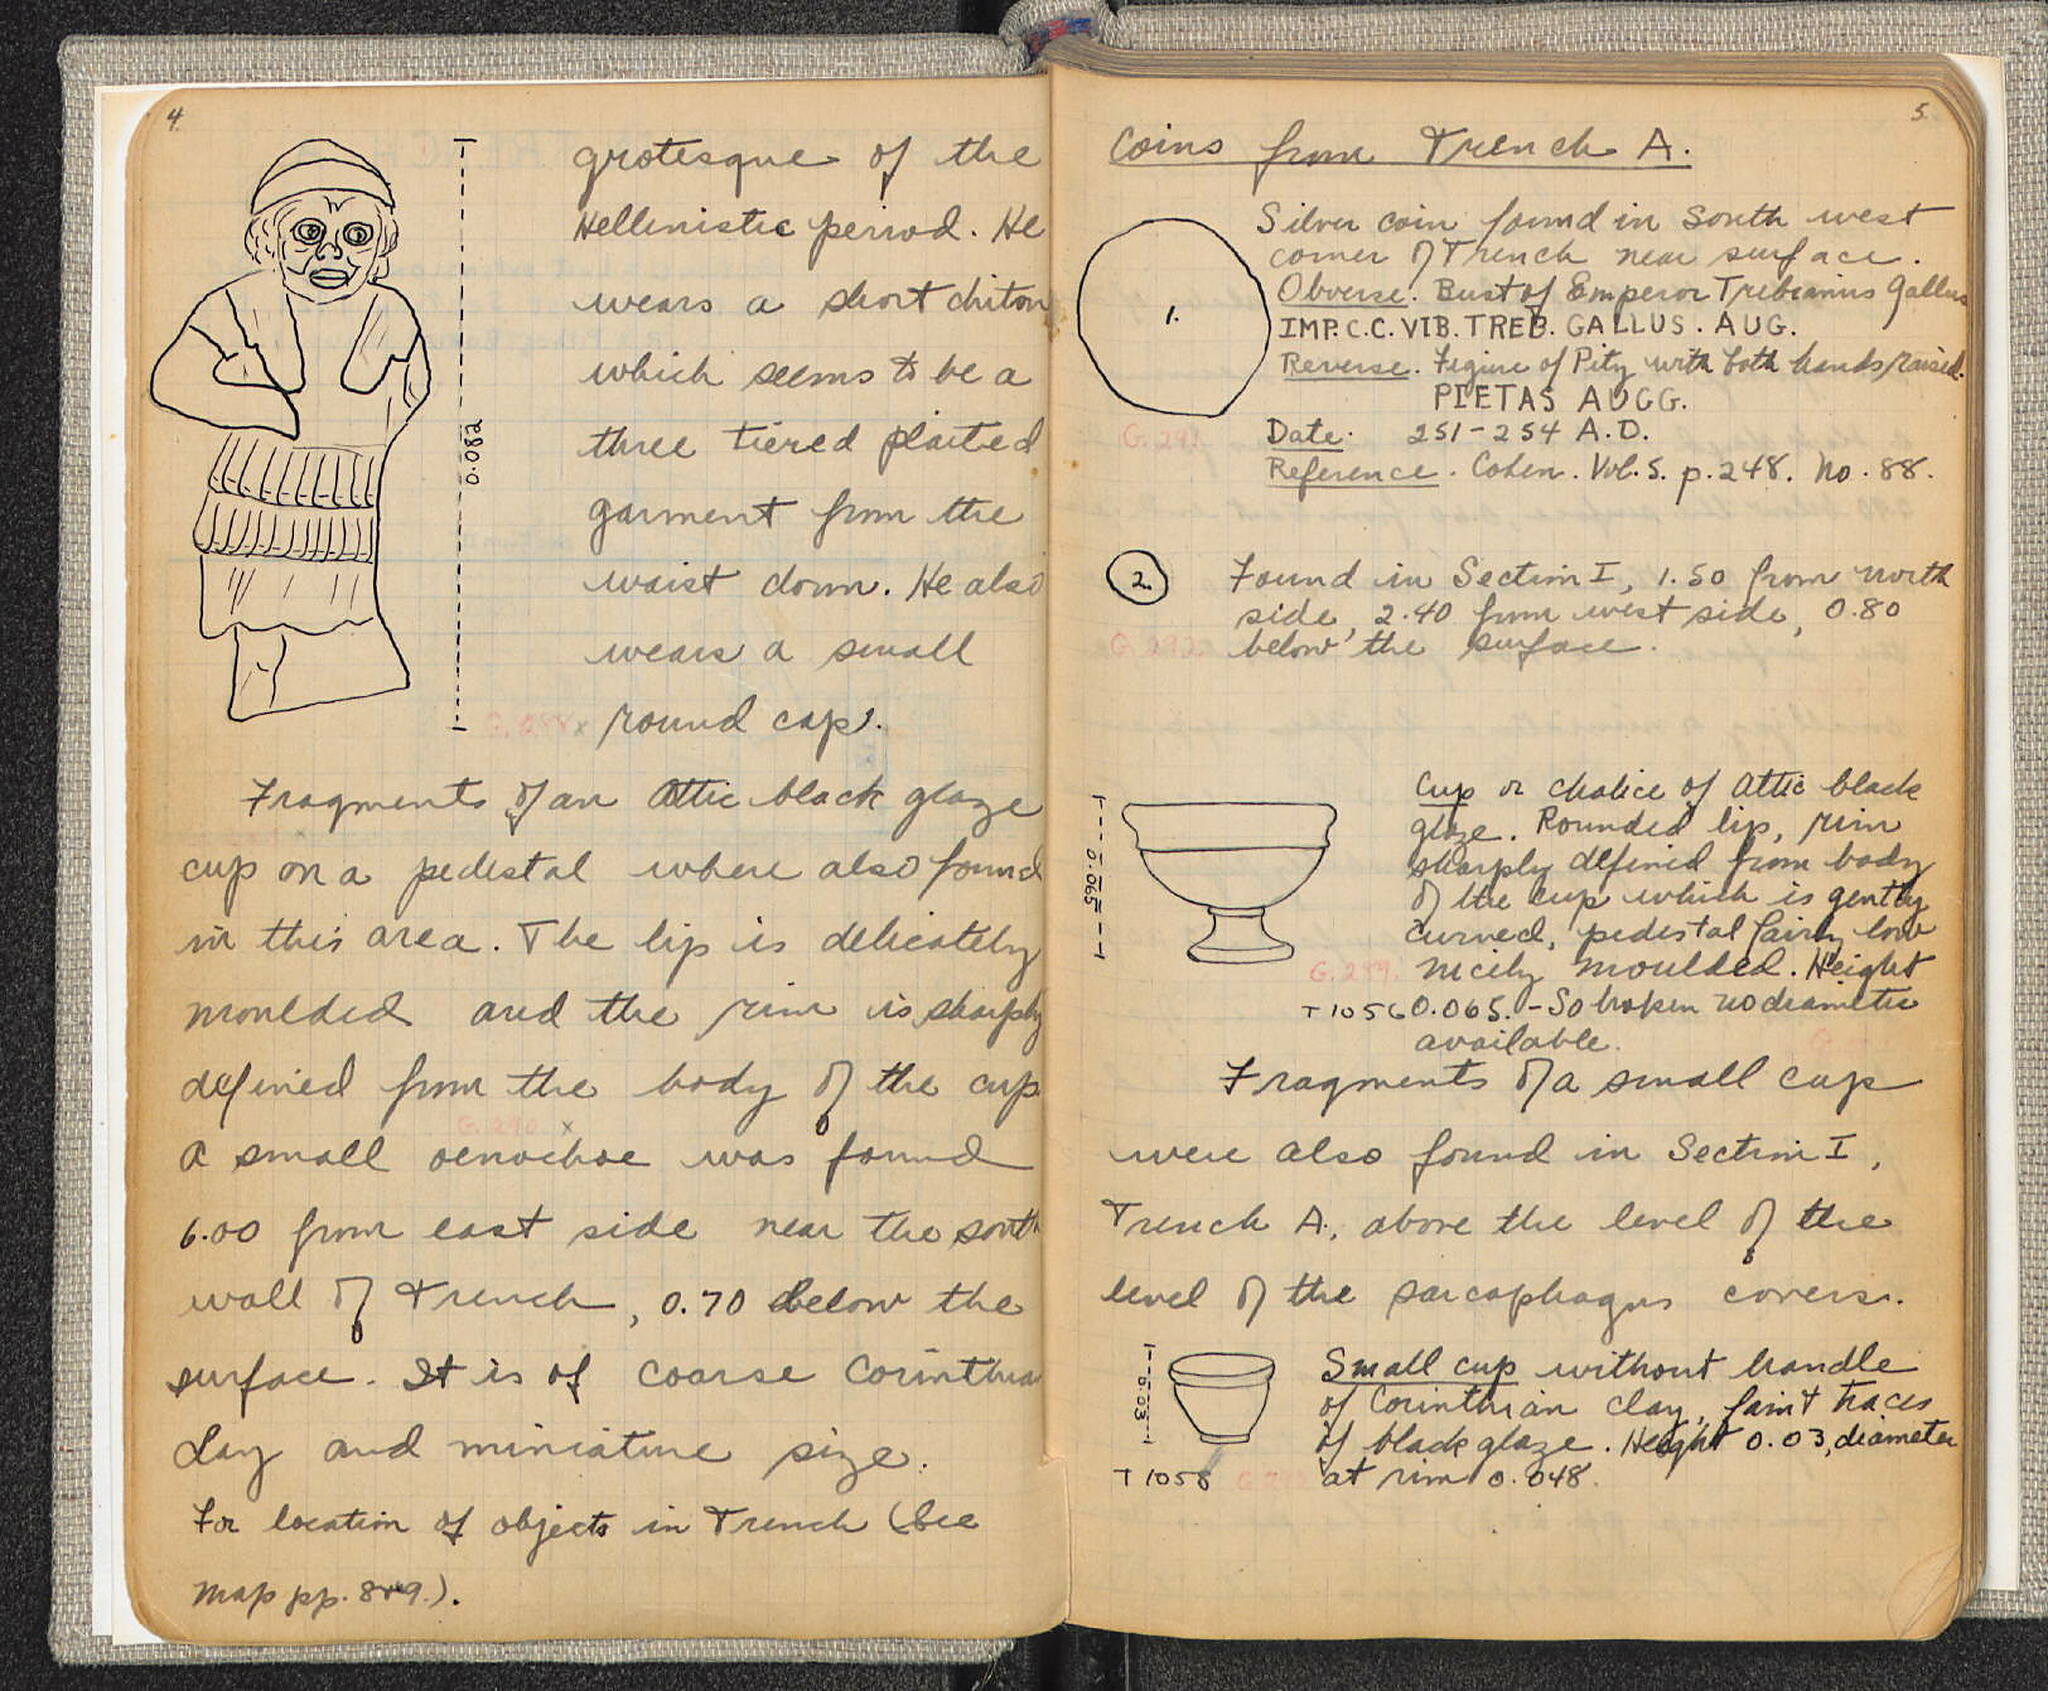 4.
grotesque of the
Hellenistic period. He
wears a short chiton
which seems to be a
three tiered plaited
garment from the
waist down. He also
wears a small
round cap.
0.082
G. 288 x
Fragments of an Attic black glaze
cup on a pedestal where also found
in this area. The lip is delicately
moulded and the rim is sharply
defined from the body of the cup.
G. 290 x
A small oenochoe was found
6.00 from east side near the south
wall of Trench, 0.70 below the
surface. It is of coarse Corinthian
clay and miniature size.
For location of objects in Trench (See
Map pp. 8+9.).
5.
Coins from Trench A.
1.
Silver coin found in South west
corner of Trench near surface.
Obverse. Bust of Emperor Trebianus Gallus
IMP.C.C.VIB.TREB.GALLUS.AUG.
Reverse. Figure of Pity with both hands raised.
PIETAS AUGG.
G. 291.
Date. 251-254 A.D.
Reference. Cohen. Vol. 5. p. 248. No. 88.
2.
Found in Section I, 1.50 from north
side, 2.40 from west side, 0.80
G. 292.
below the surface.
0.065
Cup or chalice of Attic black
glaze. Rounded lip, rim
sharply defined from body
of the cup which is gently
curved, pedestal fairly low
G. 289.
nicely moulded. Height
T 1056 0.065. - So broken no diameter
available.
Fragments of a small cup
were also found in Section I,
Trench A, above the level of the
level of the sarcophagus covers.
0.03
Small cup without handle
of Corinthian clay, faint traces
of black glaze. Height 0.03, diameter
T 1058
at rim 0.048.